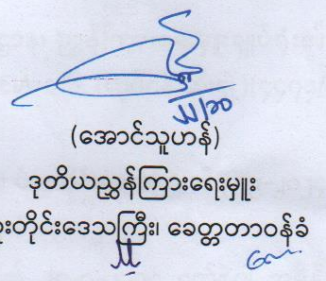 ၂၂/၁၀
(အောင်သူဟန်)
ဒုတိယညွှန်ကြားရေးမှူး
တိုင်းဒေသကြီး၊ ခေတ္တတာဝန်ခံ